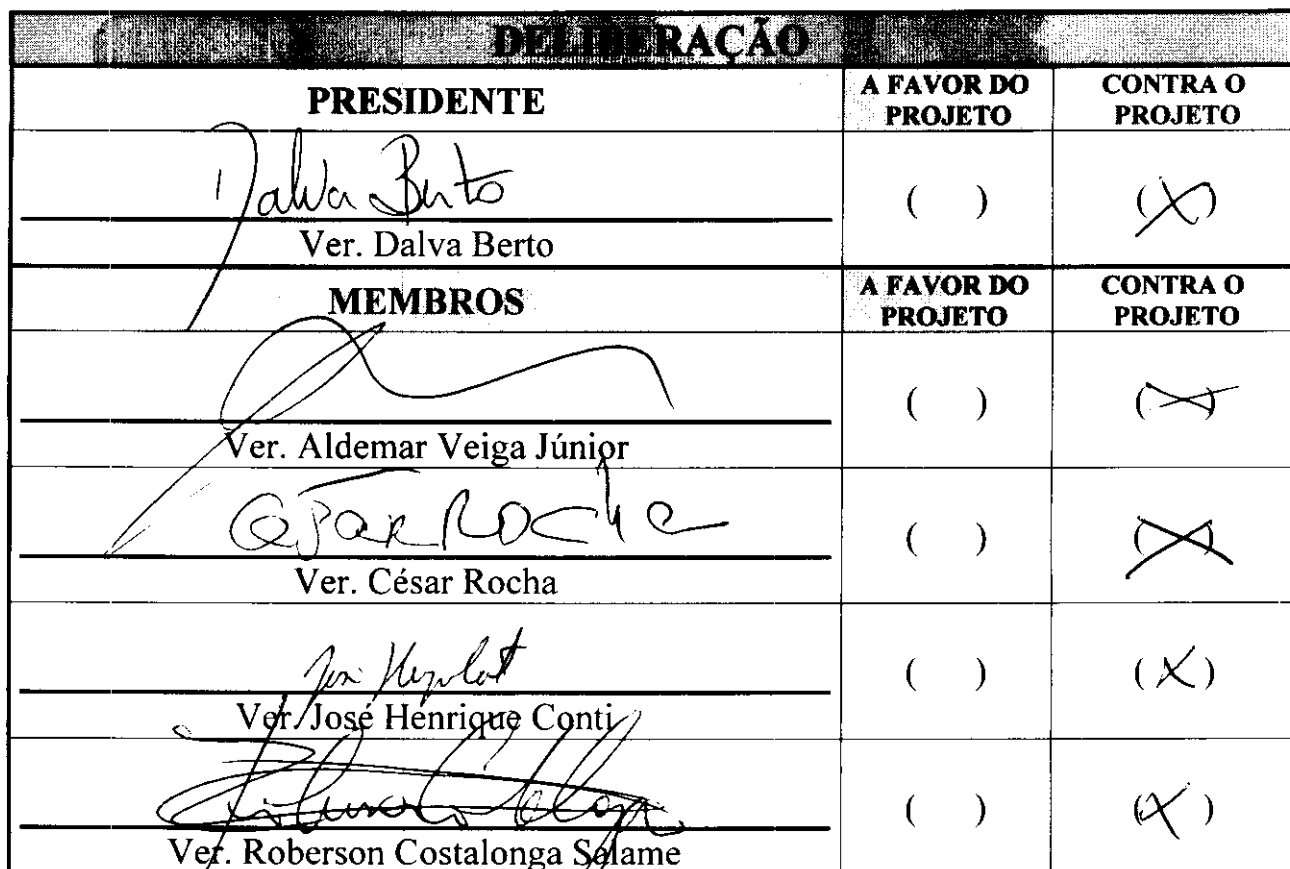 DELIBERAÇÃO
PRESIDENTE A FAVOR DO PROJETO CONTRA O PROJETO
Dalva Berto ( ) (X)
Ver. Dalva Berto
MEMBROS A FAVOR DO PROJETO CONTRA O PROJETO
( ) (X)
Ver. Aldemar Veiga Júnior
César Rocha ( ) (X)
Ver. César Rocha
( ) (X)
Ver. José Henrique Conti
( ) (X)
Ver. Roberson Costalonga Salame